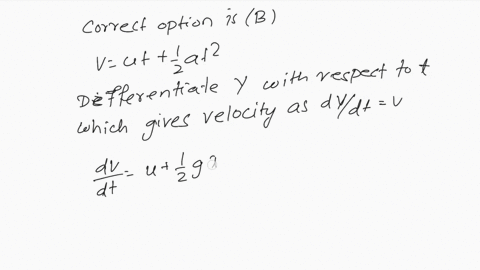 Correct option is (B)
V = ut + 1/2 at²
Differentiate Y with respect to t
which gives velocity as dy/dt = v
dv/dt = u + 1/2 g 2